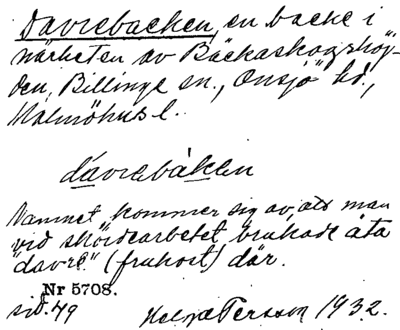 Davrebacken, en backe i
närheten av Bäckaskogshöj-
den, Billinge sn., Onsjö hd.,
Malmöhus l.
dávrebàken
Namnet kommer sig av, att man
vid skördearbetet brukade äta
"davre" (frukost) där.
Nr 5708.
sid. 49
Helge Persson 1932.